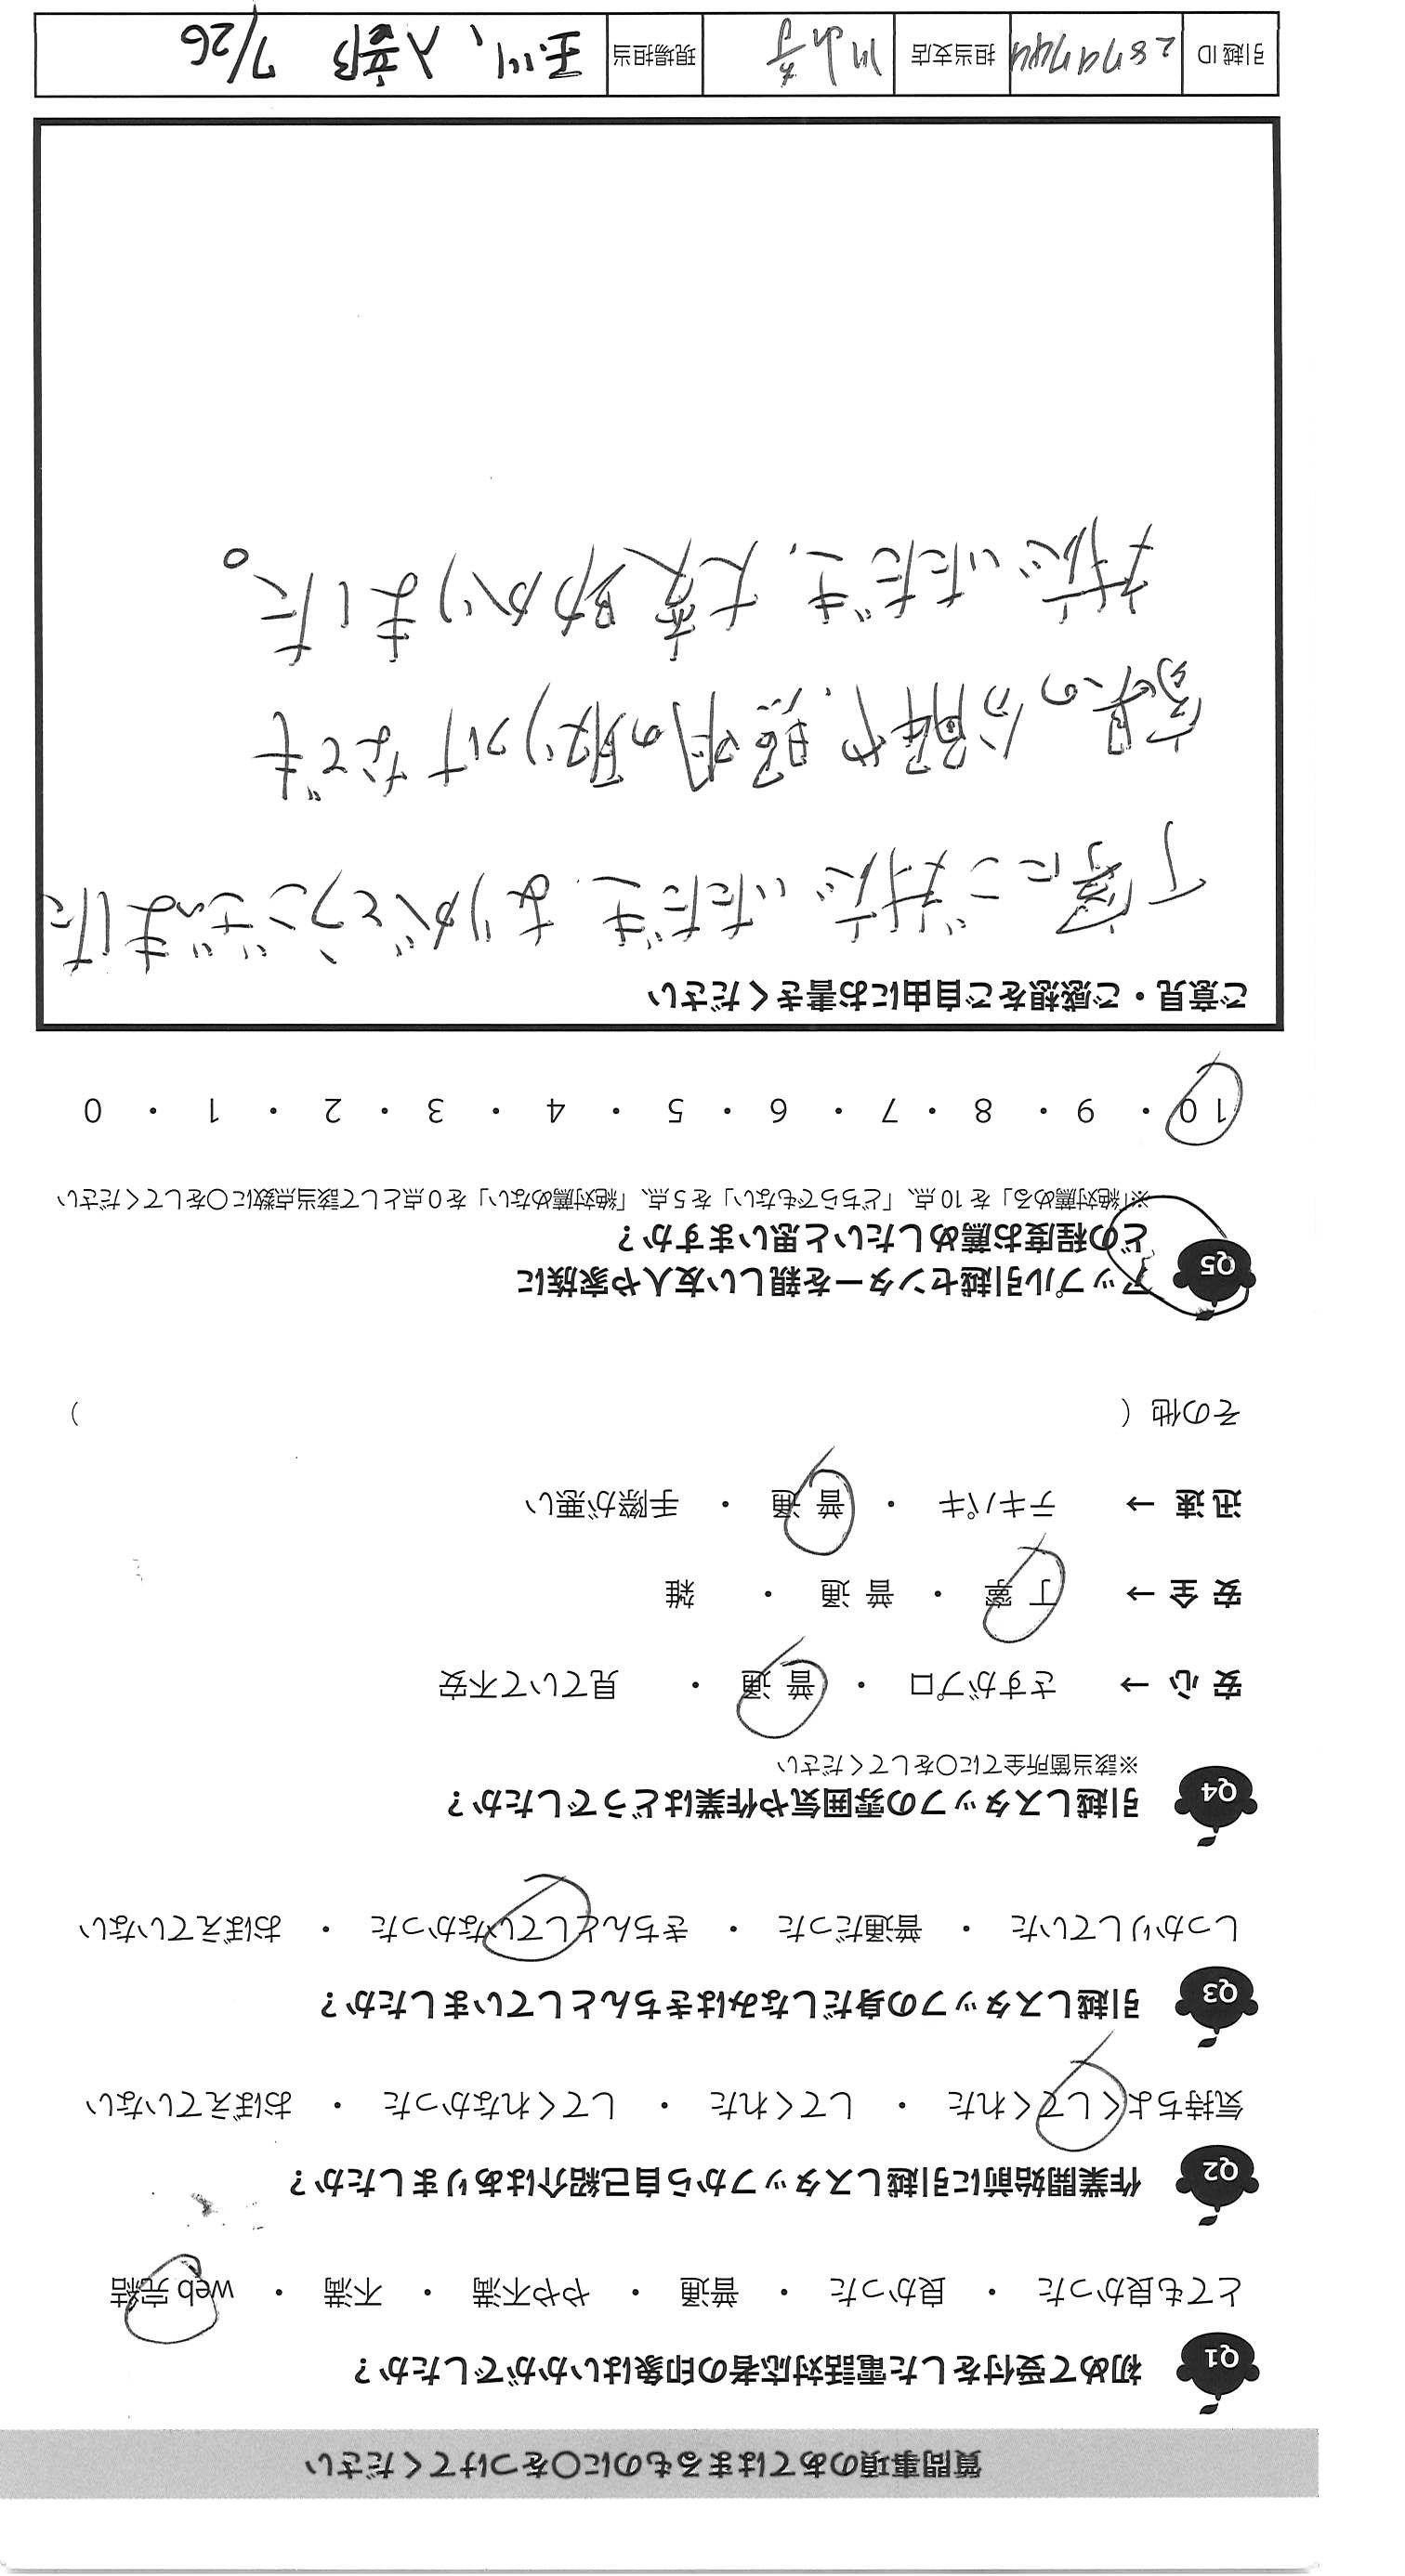 質問事項のあてはまるものに〇をつけてください
Q1 初めて受付をした電話対応者の印象はいかがでしたか？
とても良かった ・ 良かった ・ 普通 ・ やや不満 ・ 不満 ・ web 完結
Q2 作業開始前に引越しスタッフから自己紹介はありましたか？
気持ちよくしてくれた ・ してくれた ・ してくれなかった ・ おぼえていない
Q3 引越しスタッフの身だしなみはきちんとしていましたか？
しっかりしていた ・ 普通だった ・ きちんとしていなかった ・ おぼえていない
Q4 引越しスタッフの雰囲気や作業はどうでしたか？
※該当箇所全てに〇をしてください
安 心 → さすがプロ ・ 普 通 ・ 見ていて不安
安 全 → 丁 寧 ・ 普 通 ・ 雑
迅 速 → テキパキ ・ 普 通 ・ 手際が悪い
その他（ ）
Q5 アップル引越センターを親しい友人や家族に
どの程度お薦めしたいと思いますか？
※「絶対薦める」を 10 点、「どちらでもない」を 5 点、「絶対薦めない」を 0 点として該当点数に〇をしてください
10 ・ 9 ・ 8 ・ 7 ・ 6 ・ 5 ・ 4 ・ 3 ・ 2 ・ 1 ・ 0
ご意見・ご感想をご自由にお書きください
丁寧にご対応いただき、ありがとうございました
家具の分解や、照明の取りつけなども
対応いただき、大変助かりました。
引越 ID 担当支店 現場担当 玉川、 7/26